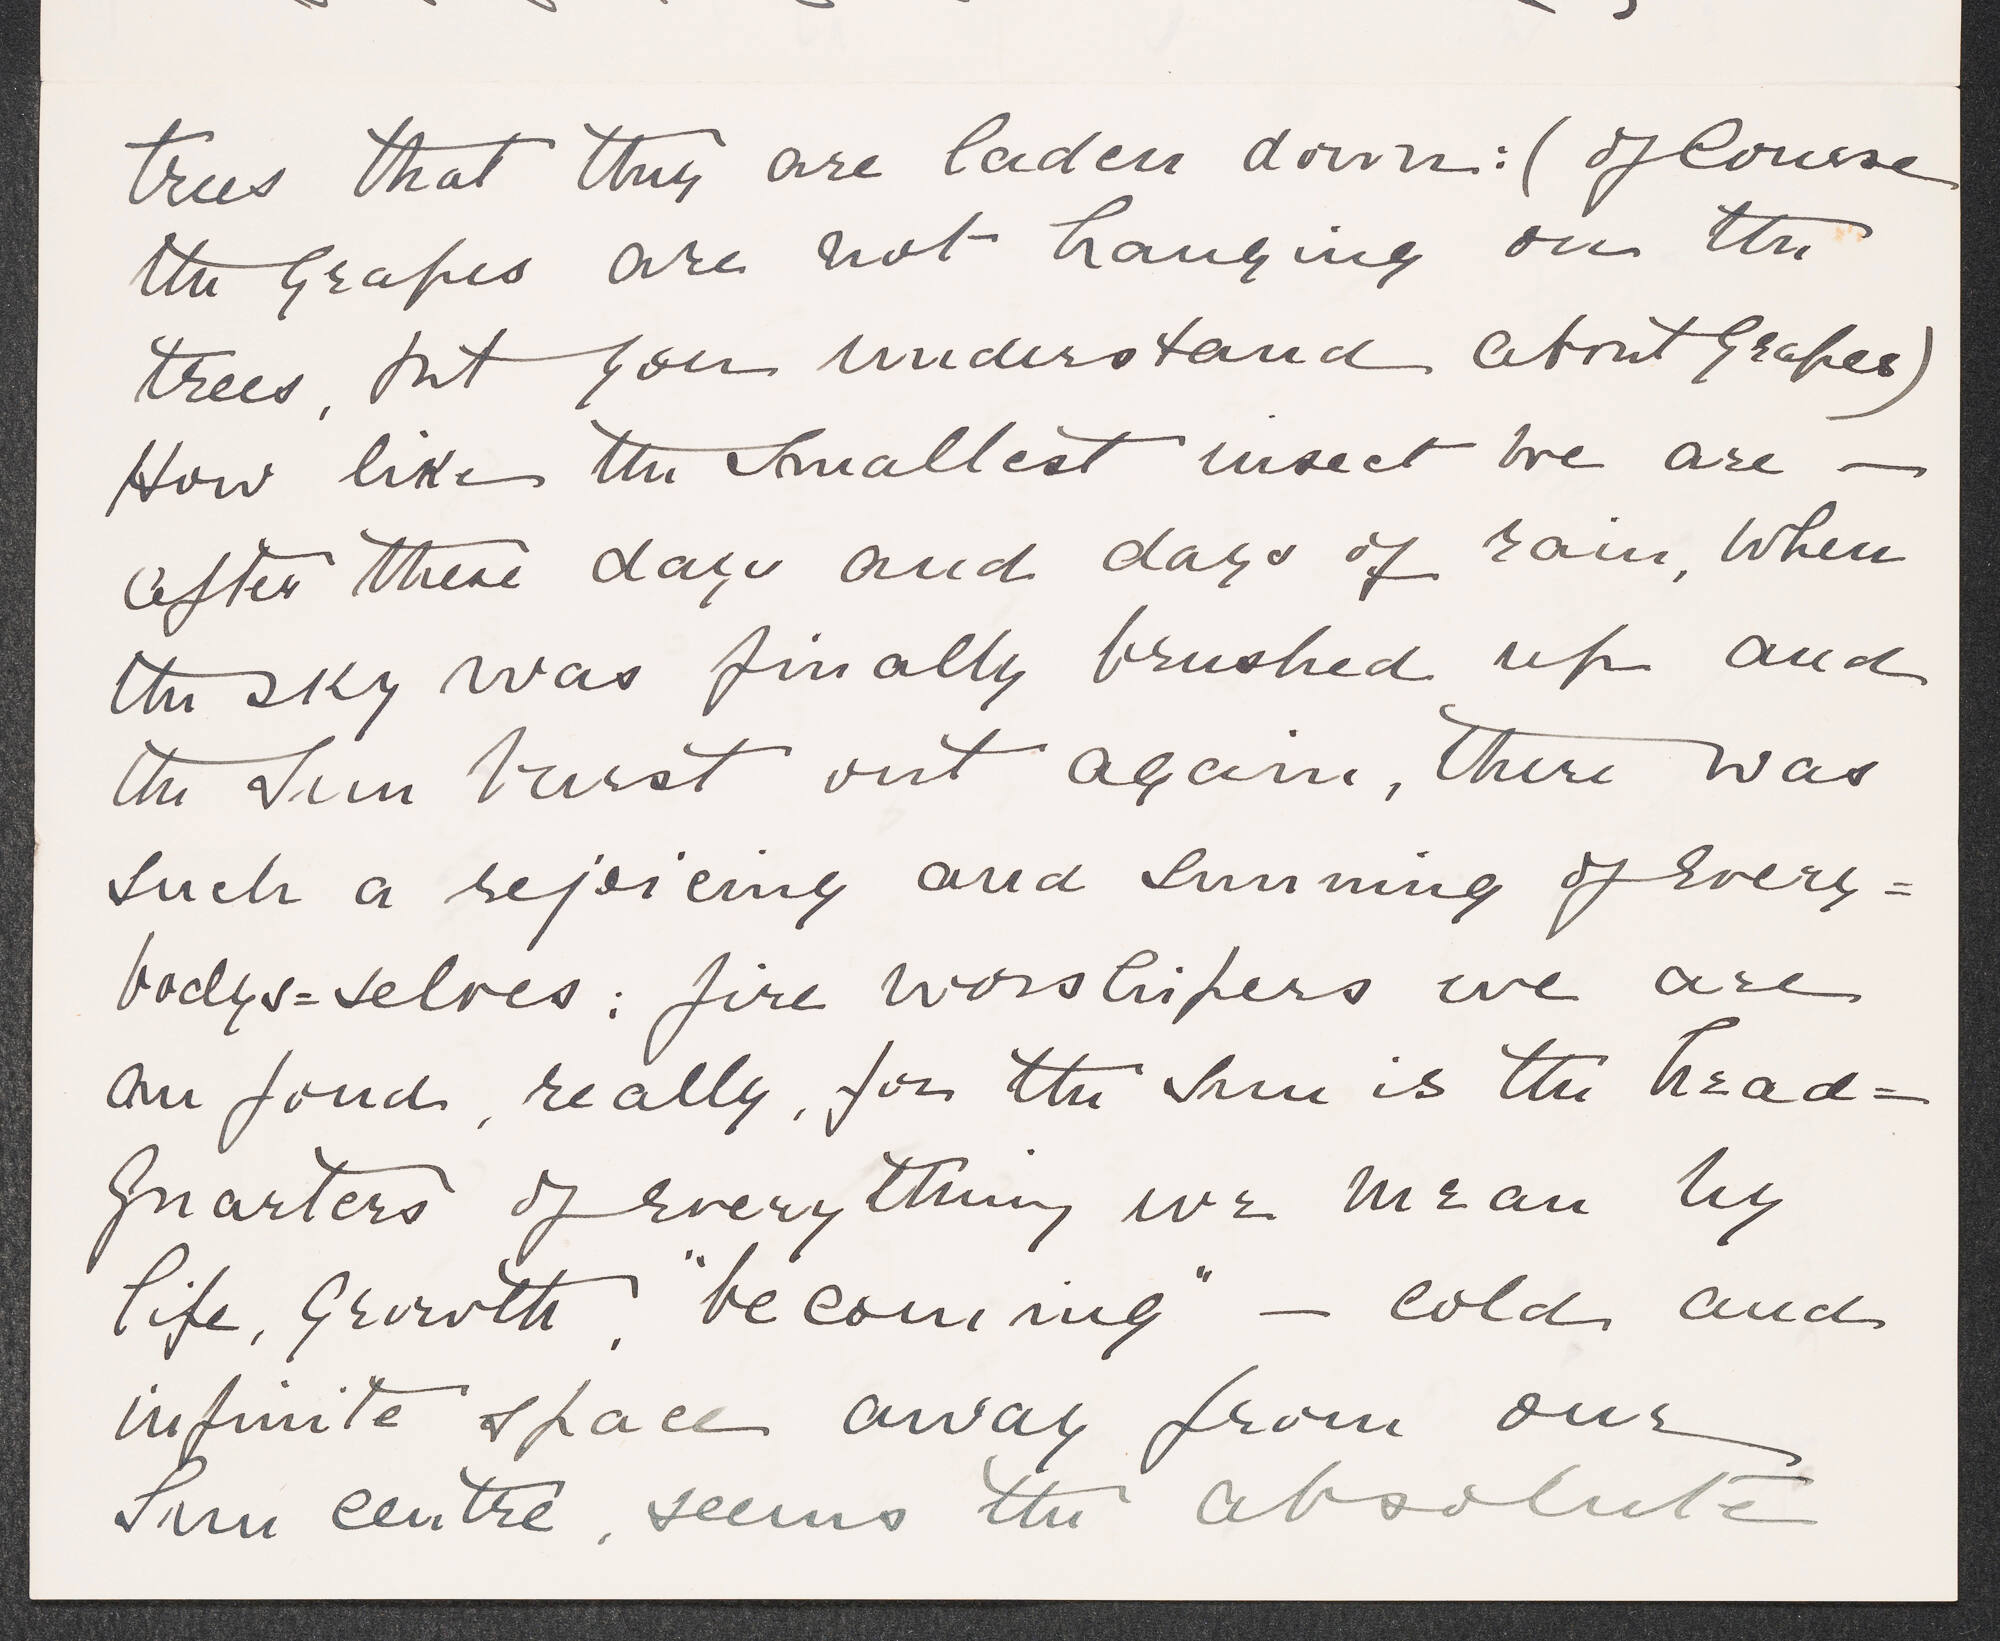 trees that they are laden down: (of Course
the Grapes are not hanging on the
trees, but you understand about Grapes)
How like the Smallest insect we are —
after these days and days of rain, when
the sky was finally brushed up and
the Sun burst out again, there was
such a rejoicing and sunning of every=
bodys=selves: fire worshipers we are
au fond, really, for the Sun is the head=
quarters of everything we mean by
life, growth, "becoming" — cold and
infinite space away from our
Sun centre, seems the absolute